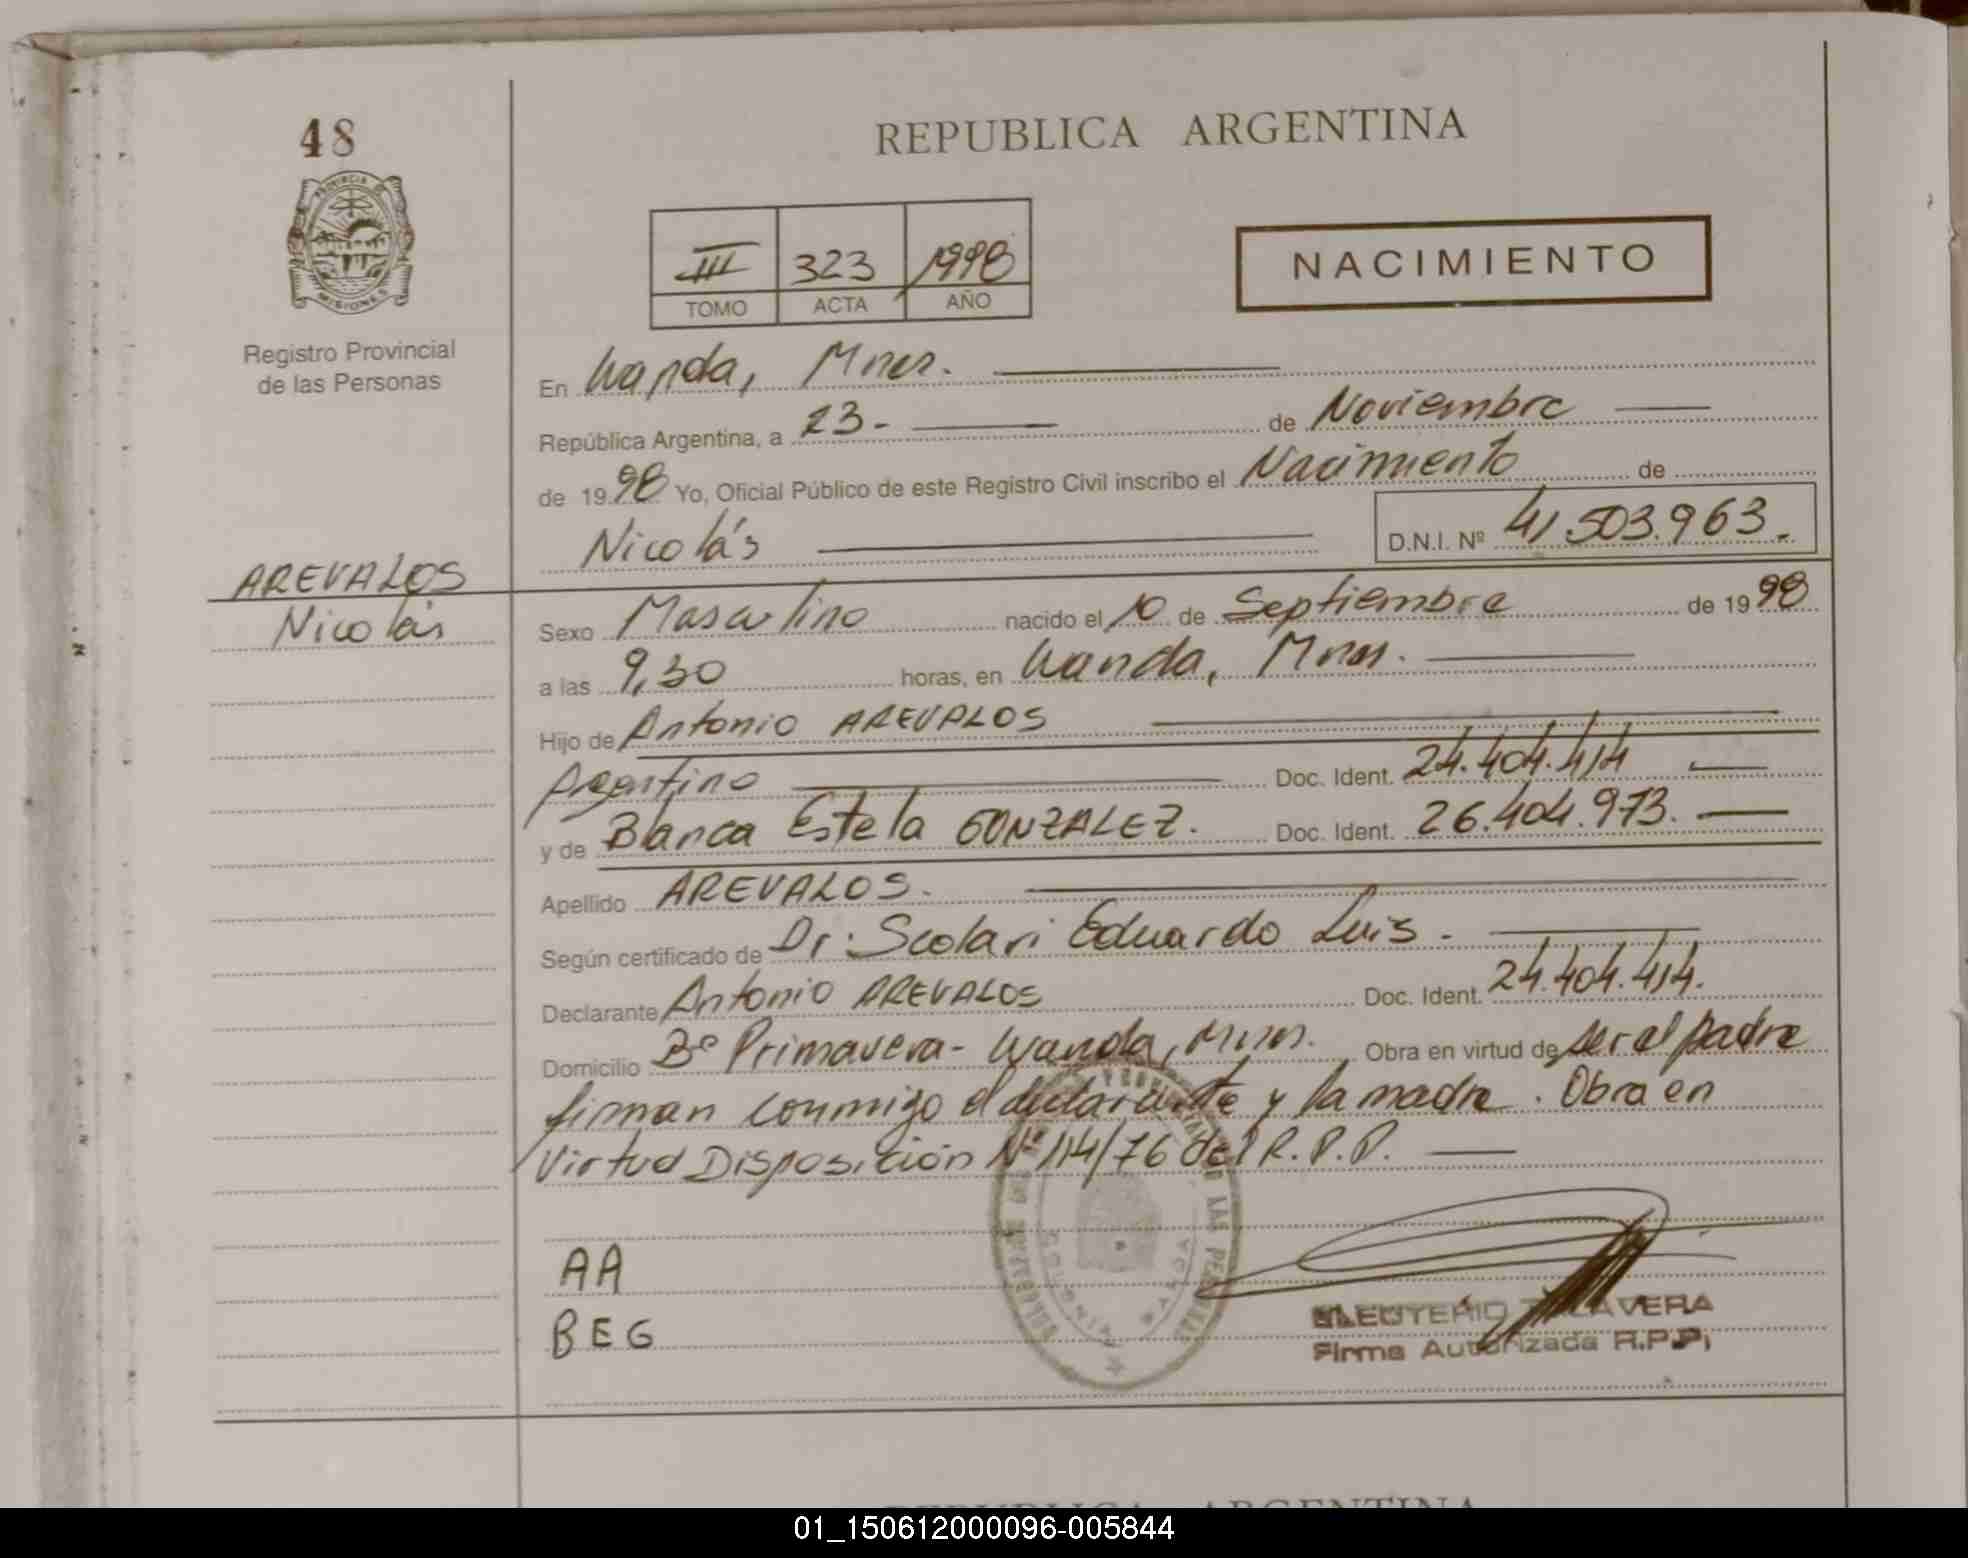 48
REPUBLICA ARGENTINA
PROVINCIA DE
MISIONES
Registro Provincial
de las Personas
III 323 1998
TOMO ACTA AÑO
NACIMIENTO
En Wanda, Mnes.
República Argentina, a 23- de Noviembre
de 1998 Yo, Oficial Público de este Registro Civil inscribo el Nacimiento de
Nicolás D.N.I. Nº 41.503.963.
AREVALOS
Nicolás
Sexo Masculino nacido el 10 de Septiembre de 1998
a las 9,30 horas, en Wanda, Mnes.
Hijo de Antonio AREVALOS
Argentino Doc. Ident. 24.404.414
y de Blanca Estela GONZALEZ. Doc. Ident. 26.404.973.
Apellido AREVALOS.
Según certificado de Dr. Scolari Eduardo Luis.
Declarante Antonio AREVALOS Doc. Ident. 24.404.414.
Domicilio Bº Primavera- Wanda, Mnes. Obra en virtud de ser el padre
firman conmigo el declarante y la madre. Obra en
Virtud Disposición Nº 114/76 del R.P.P.
AA
BEG
ELEUTERIO TALAVERA
Firma Autorizada R.P.P.
REPUBLICA ARGENTINA
01_150612000096-005844